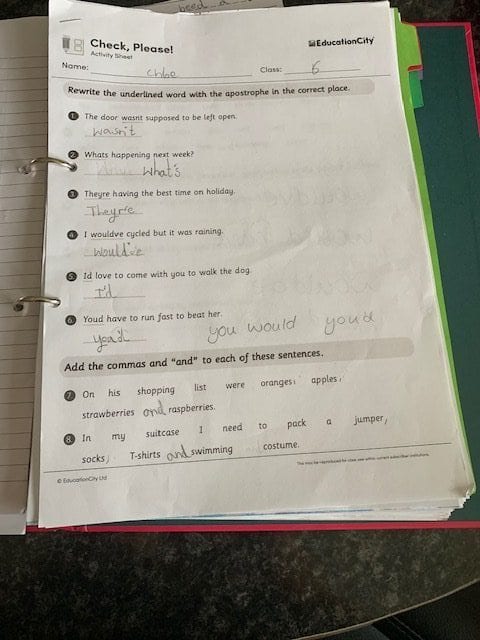 need a
Check, Please!
Activity Sheet
EducationCity
Name: Chloe Class: 6
Rewrite the underlined word with the apostrophe in the correct place.
1 The door wasnt supposed to be left open.
wasn't
2 Whats happening next week?
What's
3 Theyre having the best time on holiday.
They're
4 I wouldve cycled but it was raining.
would've
5 Id love to come with you to walk the dog.
I'd
6 Youd have to run fast to beat her.
you'd you would you'd
Add the commas and “and” to each of these sentences.
7 On his shopping list were oranges, apples,
strawberries and raspberries.
8 In my suitcase I need to pack a jumper,
socks, T-shirts and swimming costume.
© EducationCity Ltd
This may be reproduced for class use within current subscriber institutions.